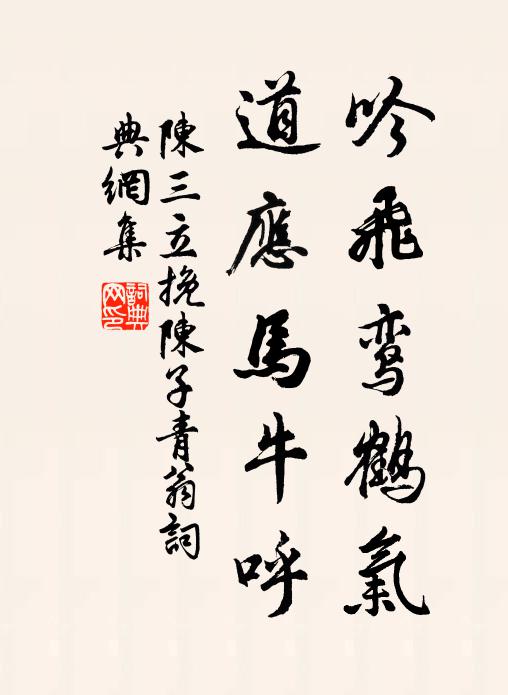 吟飛鸾鶴氣
道應馬牛呼
陳三立挽陳子青翁詞
典網集
詞典网印